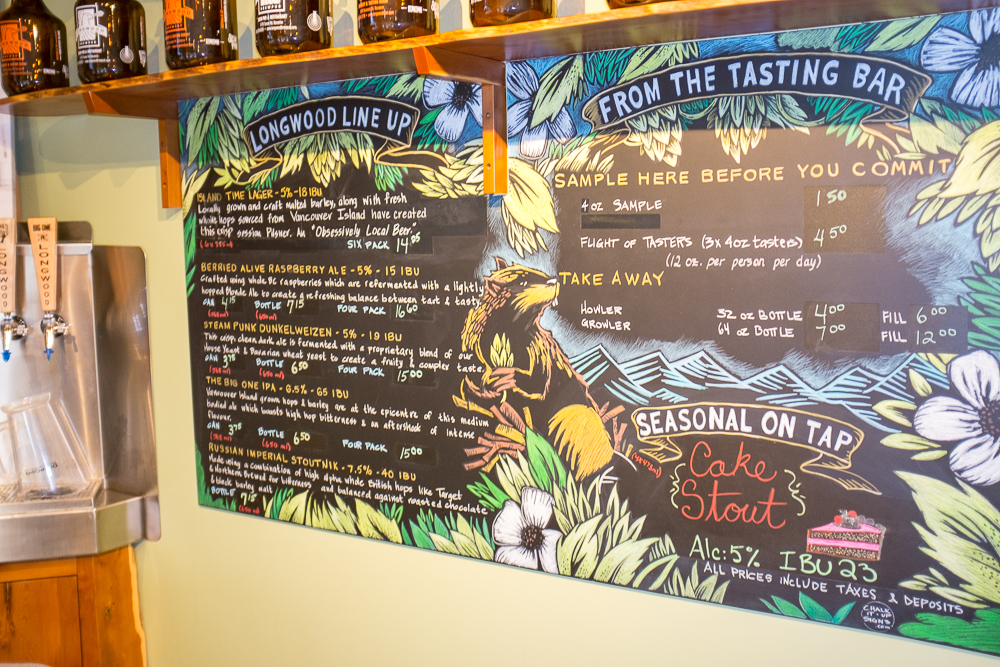 LONGWOOD LINE UP
ISLAND TIME LAGER - 5% - 18 IBU
Locally grown and craft malted barley, along with fresh
whole hops sourced from Vancouver Island have created
this crisp session Pilsner. An "Obsessively Local Beer."
SIX PACK 14.05
BERRIED ALIVE RASPBERRY ALE - 5% - 15 IBU
Crafted using whole BC raspberries which are refermented with a lightly
hopped Blonde Ale to create a refreshing balance between tart & tasty
CAN 4.15 BOTTLE 7.15 FOUR PACK 16.60
STEAM PUNK DUNKELWEIZEN - 5% - 19 IBU
This crisp, clean, dark ale is fermented with a proprietary blend of our
House Yeast & Bavarian wheat yeast to create a fruity & complex taste
CAN 3.75 BOTTLE 6.50 FOUR PACK 15.00
THE BIG ONE IPA - 6.5% - 65 IBU
Vancouver Island grown hops & barley are at the epicentre of this medium
bodied ale which boasts high hop bitterness & an aftershock of intense
flavour.
CAN 3.75 BOTTLE 6.50 FOUR PACK 15.00
RUSSIAN IMPERIAL STOUTNIK - 7.5% - 40 IBU
Made using a combination of high alpha whole British hops like Target
& Northern Brewer for bitterness and balanced against roasted chocolate
& black barley malt
BOTTLE 7.15
FROM THE TASTING BAR
SAMPLE HERE BEFORE YOU COMMIT
4 oz SAMPLE 1.50
FLIGHT OF TASTERS (3x 4oz tasters) 4.50
(12 oz. per person per day)
TAKE AWAY
HOWLER 32 oz BOTTLE 4.00 FILL 6.00
GROWLER 64 oz BOTTLE 7.00 FILL 12.00
SEASONAL ON TAP
Cake
Stout
Alc: 5% IBU 23
ALL PRICES INCLUDE TAXES & DEPOSITS
CHALK
IT-UP
SIGNS
.com
BIG ONE
LONGWOOD